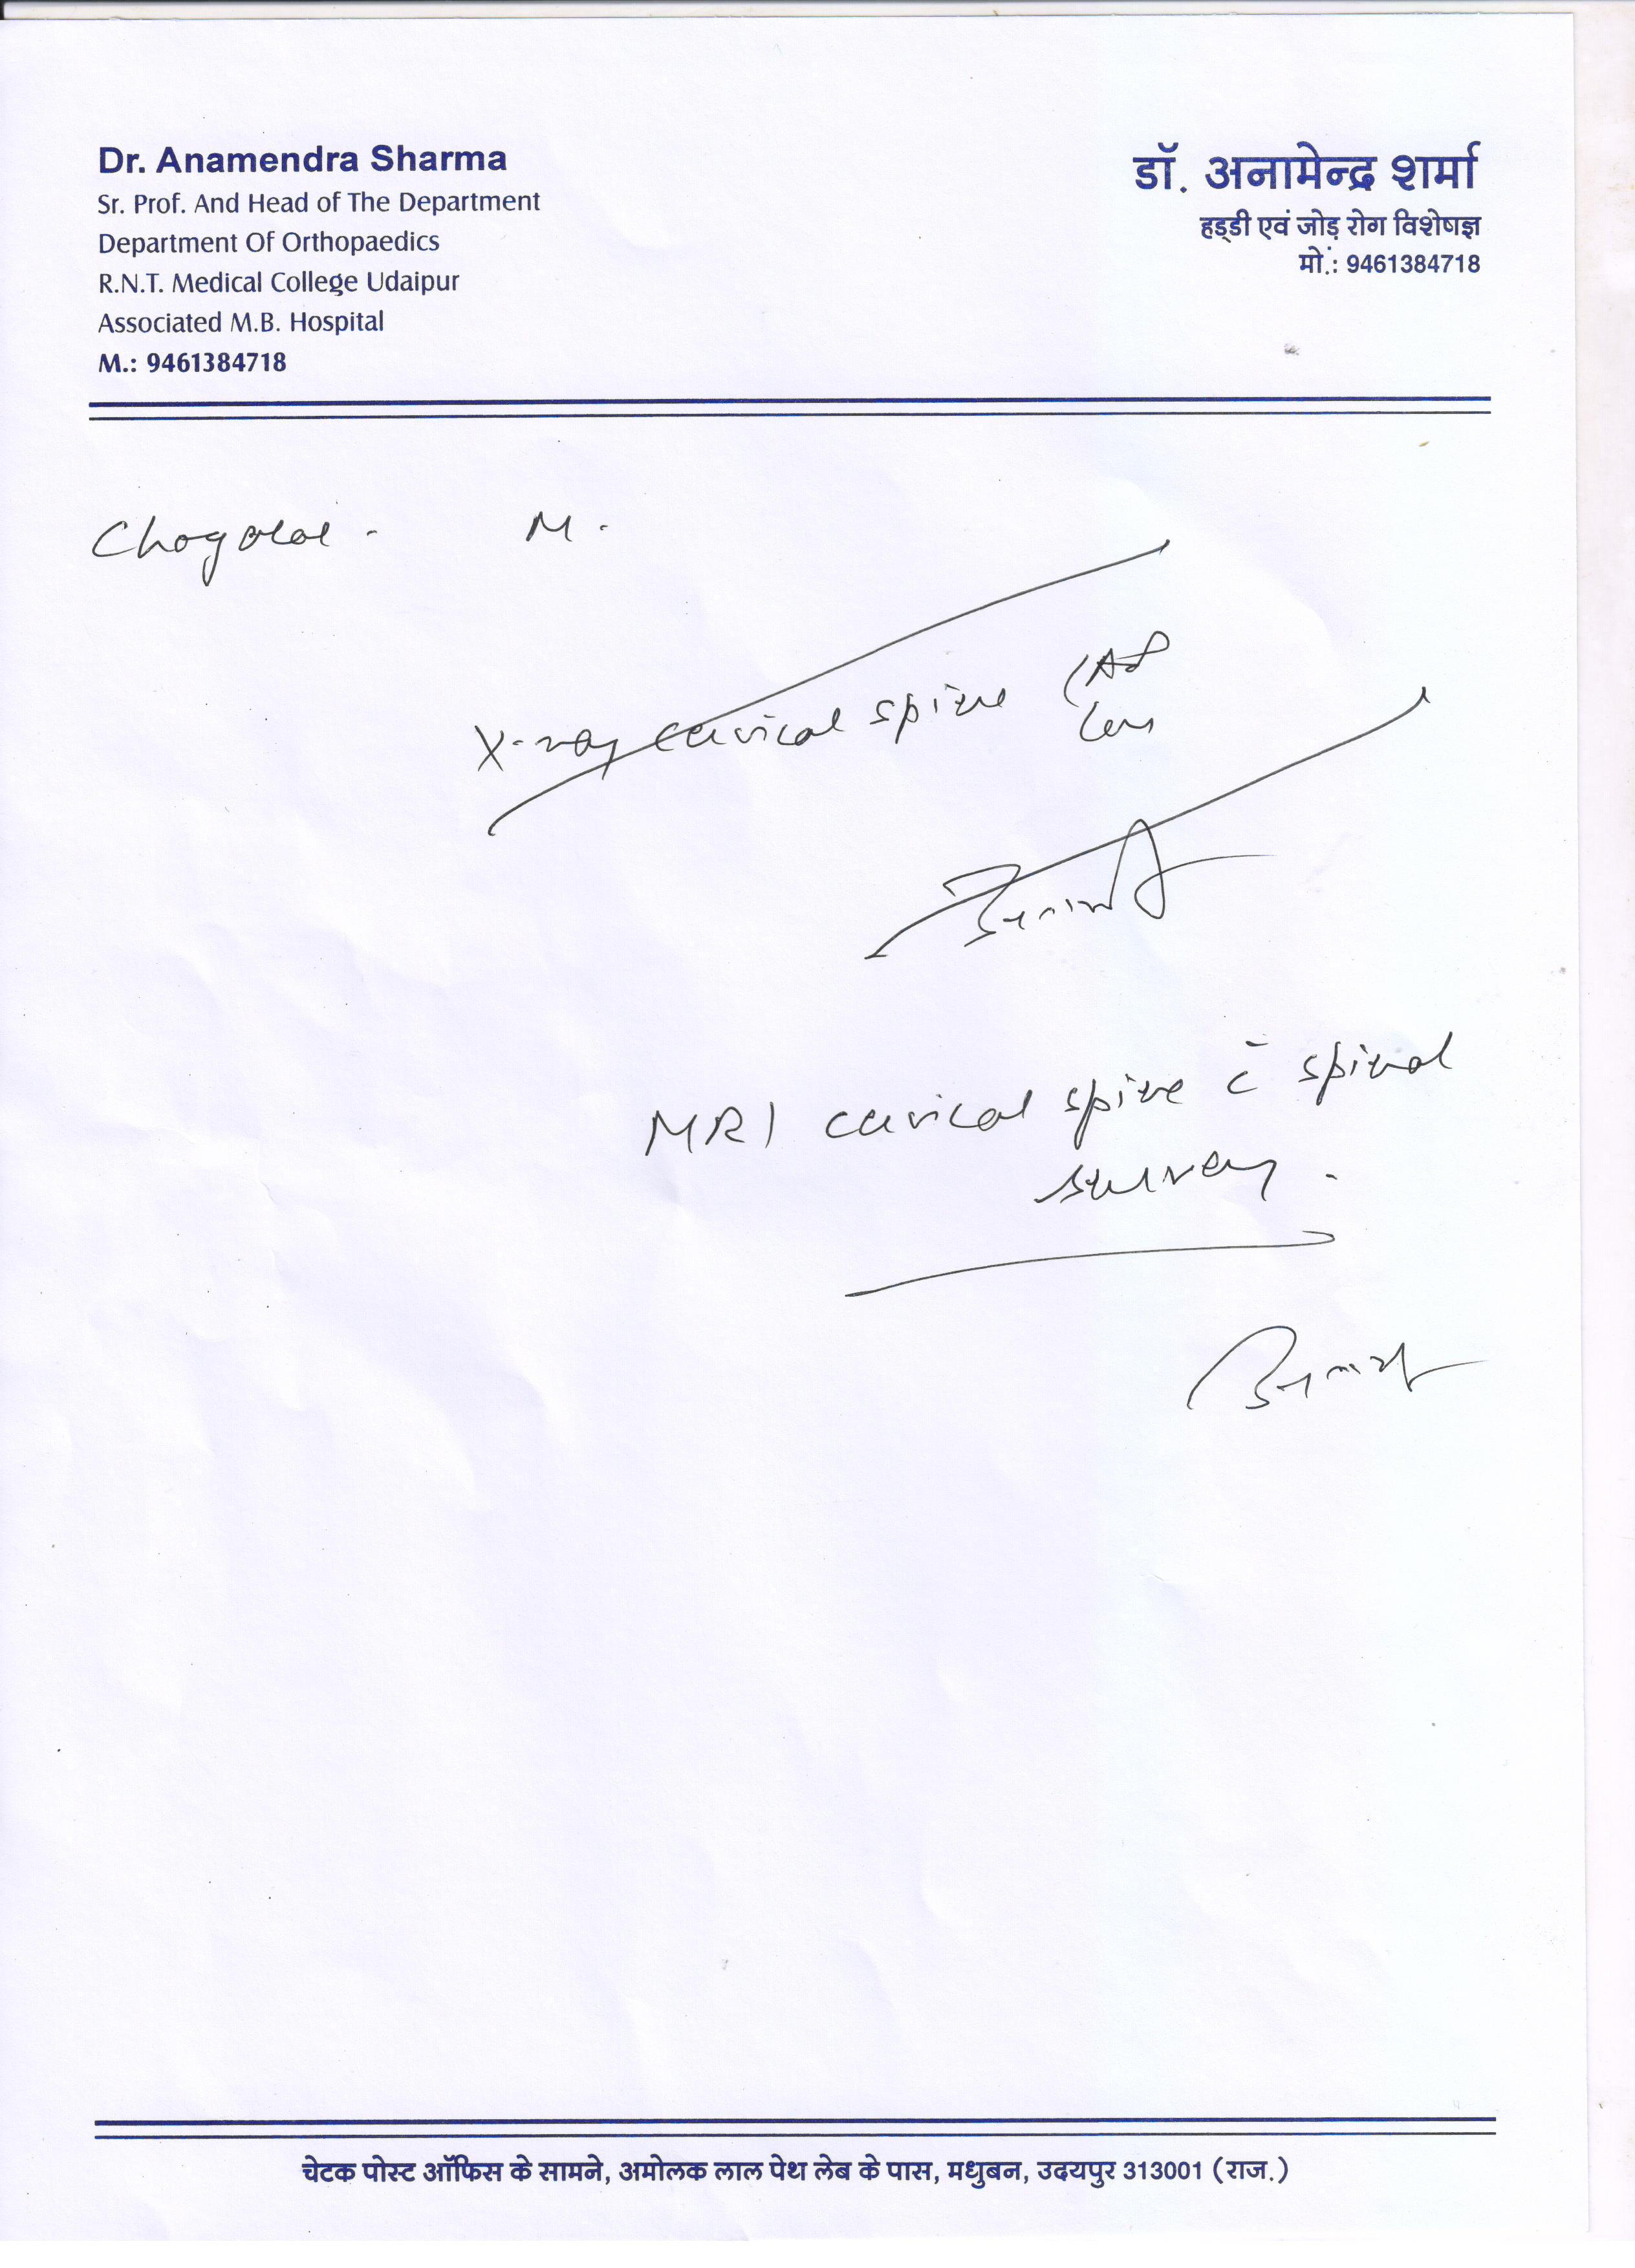 Dr. Anamendra Sharma
Sr. Prof. And Head of The Department
Department Of Orthopaedics
R.N.T. Medical College Udaipur
Associated M.B. Hospital
M.: 9461384718
डॉ. अनामेन्द्र शर्मा
हड्डी एवं जोड़ रोग विशेषज्ञ
मो.: 9461384718
M.
X-ray cervical spine (AP
MRI cervical spine c̄ spinal
survey.
चेटक पोस्ट ऑफिस के सामने, अमोलक लाल पेथ लेब के पास, मधुबन, उदयपुर 313001 (राज.)